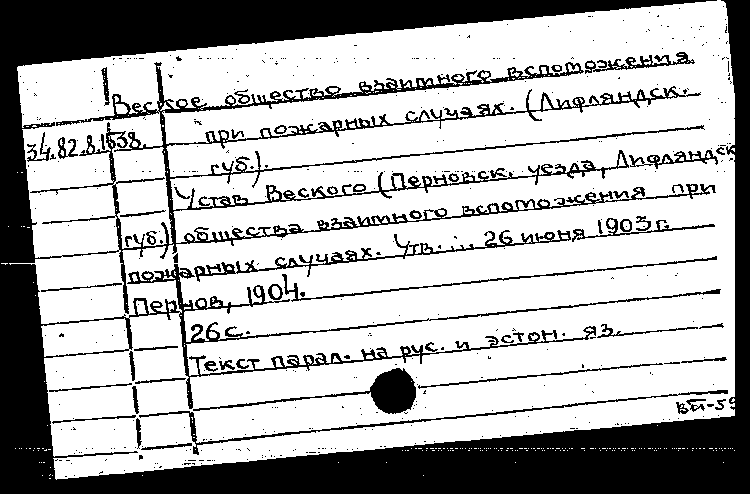 Веское общество взаимного вспоможения
34.82.8.1538. при пожарных случаях. (Лифляндск.
губ.).
Устав Веского (Перновск. уезда, Лифляндск.
губ.) общества взаимного вспоможения при
пожарных случаях. Утв.... 26 июня 1903 г.
Пернов, 1904.
26 с.
Текст парал. на рус. и эстон. яз.